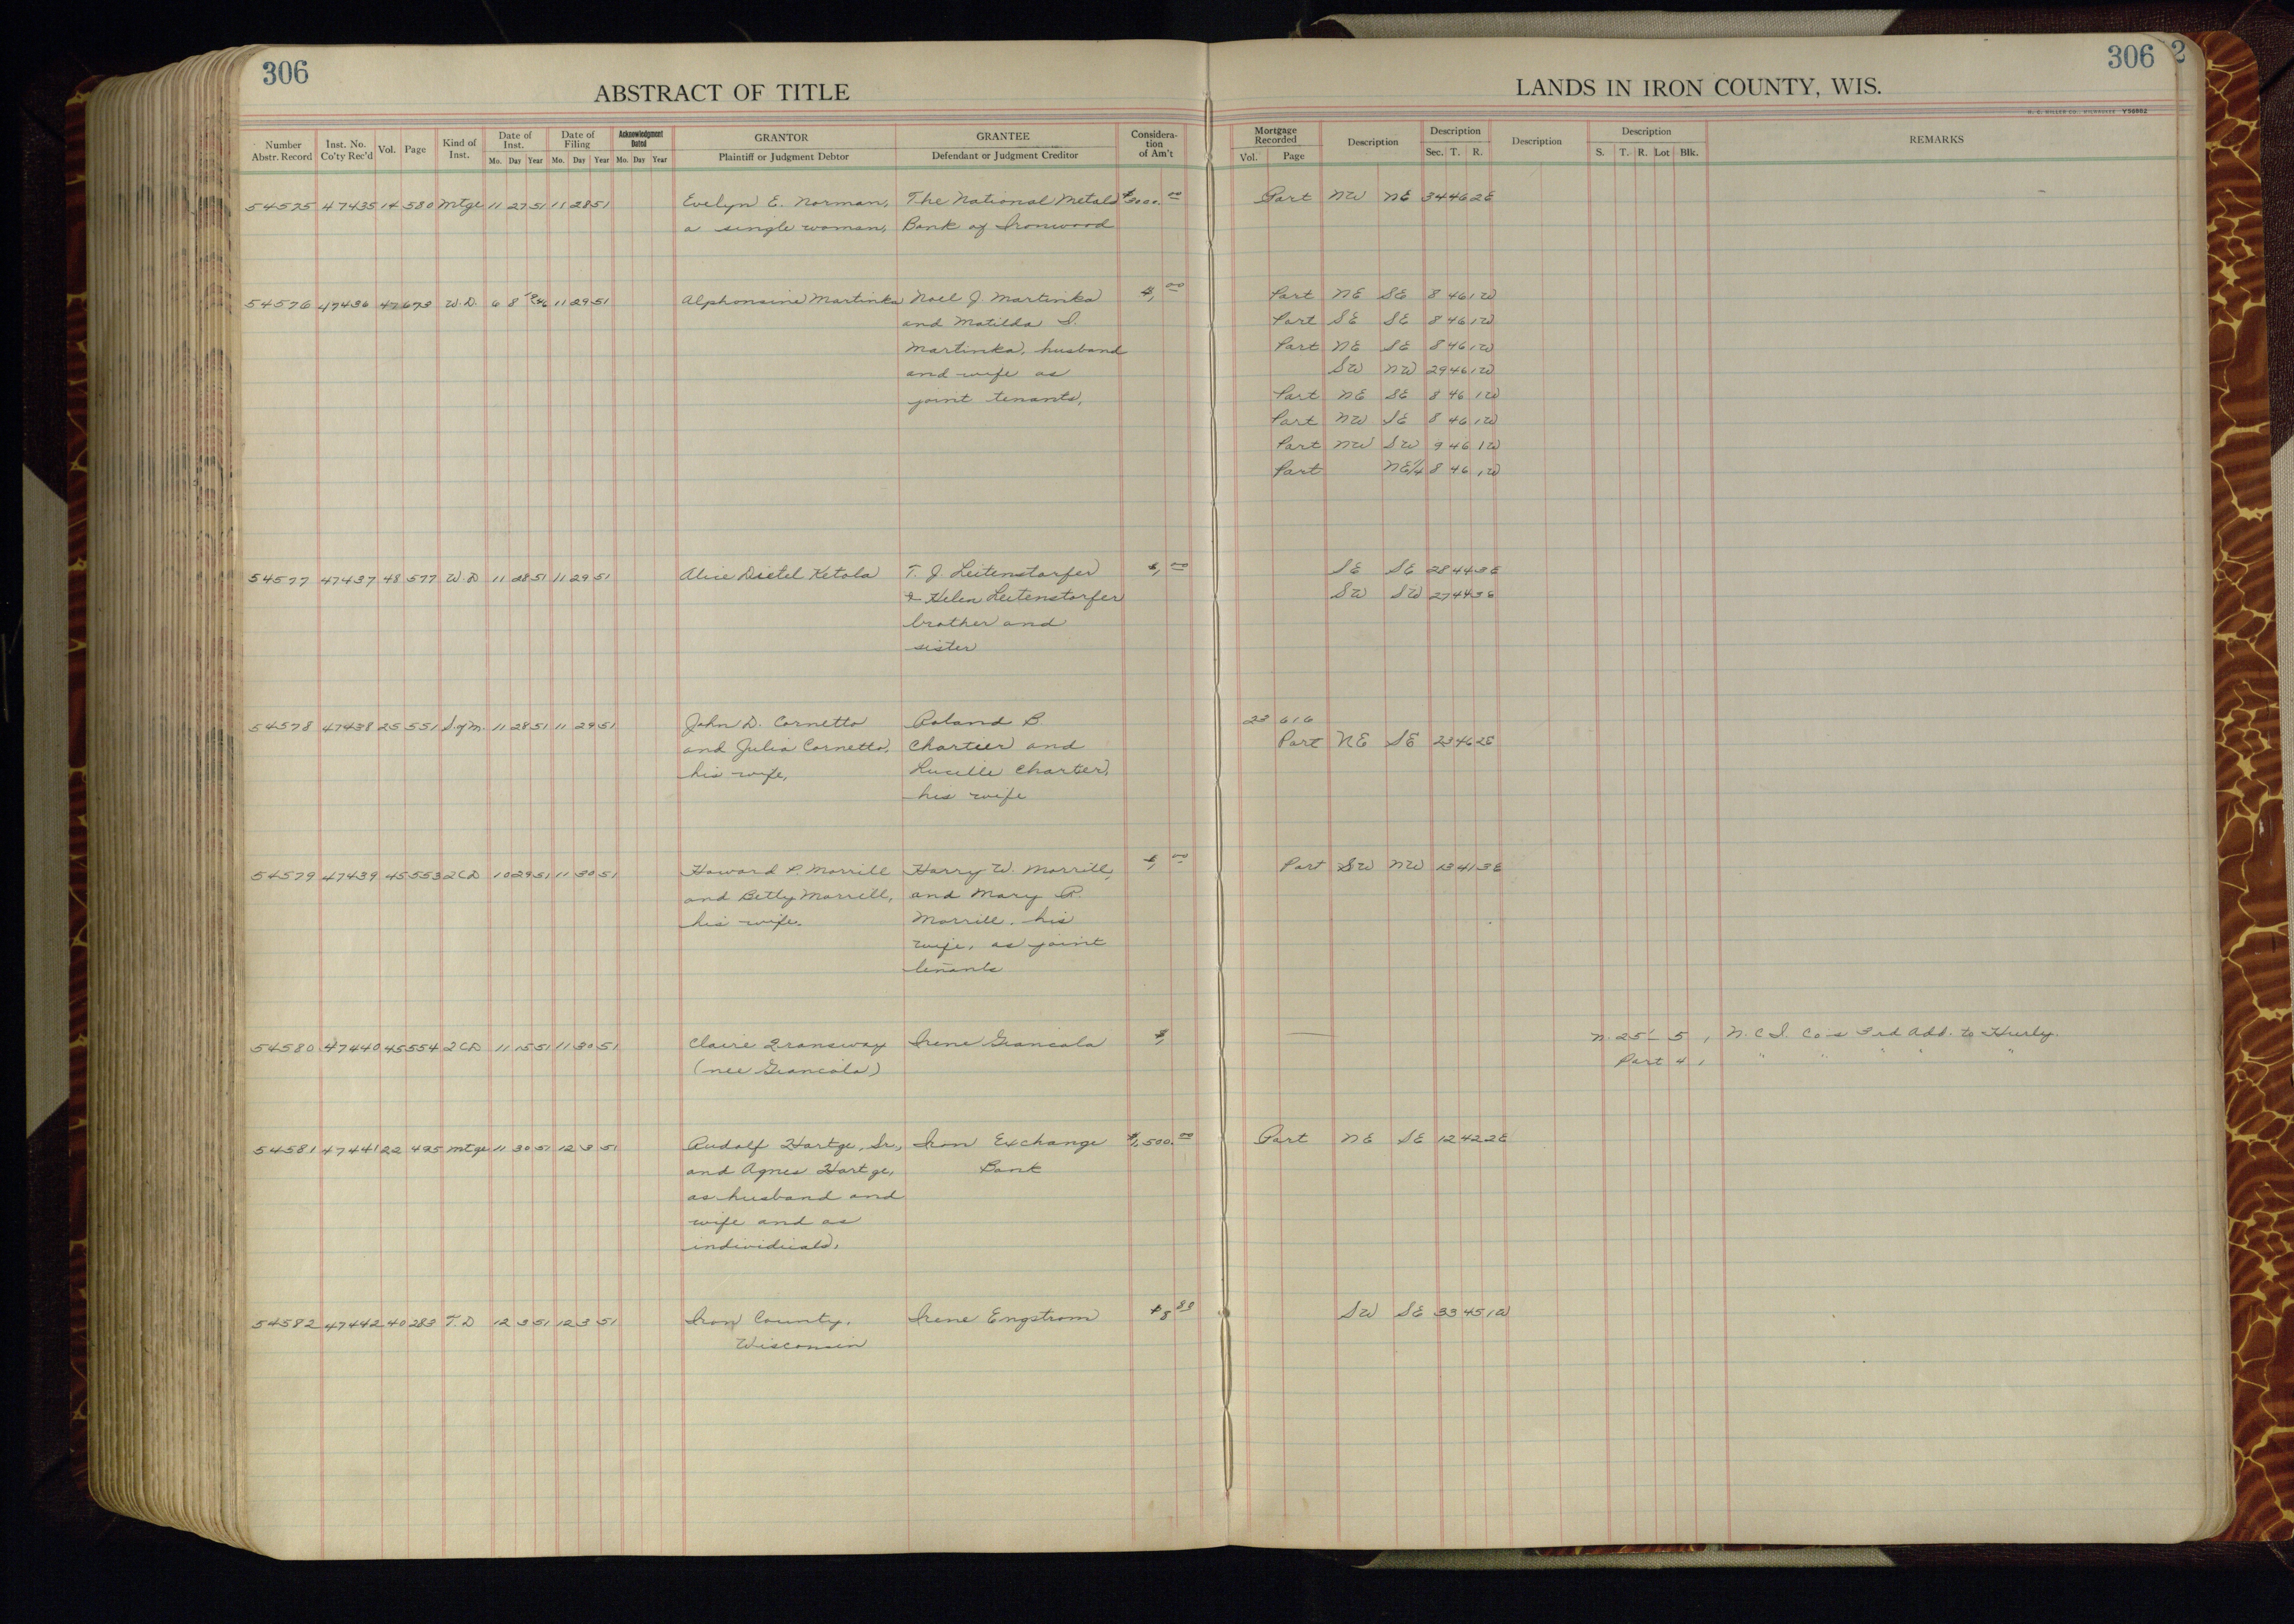 306
ABSTRACT OF TITLE
LANDS IN IRON COUNTY, WIS.
306
2
Number Abstr. Record Inst. No. Co'ty Rec'd Vol. Page Kind of Inst. Date of Inst. Mo. Day Year Date of Filing Mo. Day Year Acknowledgment Dated Mo. Day Year GRANTOR Plaintiff or Judgment Debtor GRANTEE Defendant or Judgment Creditor Considera-tion of Am't Mortgage Recorded Vol. Page Description Description Sec. T. R. Description Description S. T. R. Lot Blk. REMARKS
54575 47435 14 580 Mtge 11 27 51 11 28 51 Evelyn E. Norman, The National Metals $3000.00 Part NW NE 34 46 2E
a single woman, Bank of Ironwood
54576 47436 47 673 W.D. 6 8 46 11 29 51 Alphonsine Martinka Noel J. Martinka $1.00 Part NE SE 8 46 1W
and Matilda S. Part SE SE 8 46 1W
Martinka, husband Part NE SE 8 46 1W
and wife as SW NW 29 46 1W
joint tenants, Part NE SE 8 46 1W
Part NW SE 8 46 1W
Part NW SW 9 46 1W
Part NE1/4 8 46 1W
54577 47437 48 577 W.D 11 28 51 11 29 51 Alice Dietel Ketola T. J. Leitenstorfer $1.00 SE SE 28 44 3E
& Helen Leitenstorfer SW SW 27 44 3E
brother and
sister
54578 47438 25 551 S.of M. 11 28 51 11 29 51 John D. Cornetto Roland B. 23 616
and Julia Cornetto, Chartier and Part NE SE 23 46 2E
his wife, Lucille Chartier,
his wife
54579 47439 45 553 2CD 10 29 51 11 30 51 Howard P. Morrill Harry W. Morrill, $1.00 Part SW NW 13 41 3E
and Betty Morrill, and Mary R.
his wife. Morrill, his
wife, as joint
tenants
54580 47440 45 554 2CD 11 15 51 11 30 51 Claire Transway Irene Giancola $1 N. 25' 5 1 N.C.I. Co's 3rd Add. to Hurley
(nee Giancola) Part 4 1 " " " " "
54581 47441 22 495 Mtge 11 30 51 12 3 51 Rudolf Hartge, Sr., Iron Exchange $1,500.00 Part NE SE 12 42 2E
and Agnes Hartge, Bank
as husband and
wife and as
individuals,
54582 47442 40 283 T.D 12 3 51 12 3 51 Iron County, Irene Engstrom $8 88 SW SE 33 45 1W
Wisconsin